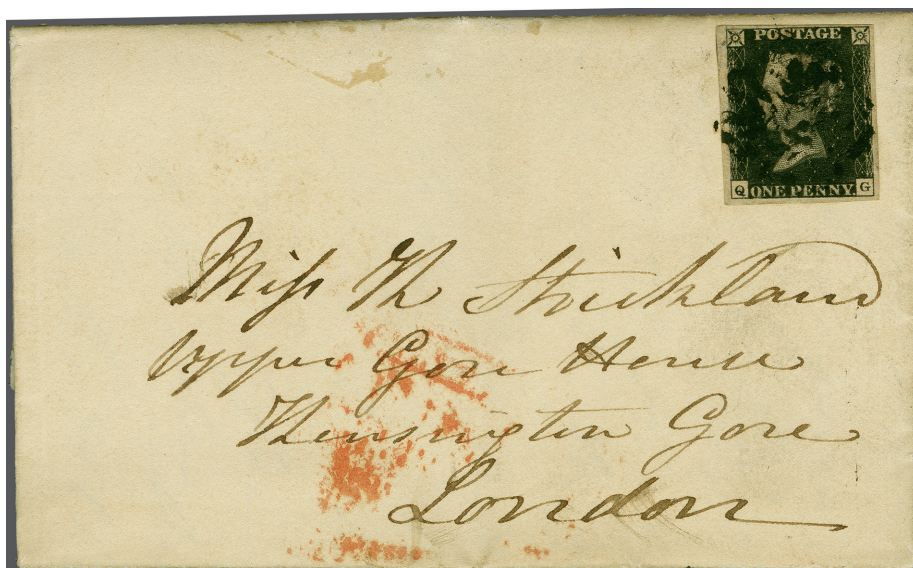 POSTAGE
Q ONE PENNY G
Miss Th Strickland
Upper Gore House
Kensington Gore
London